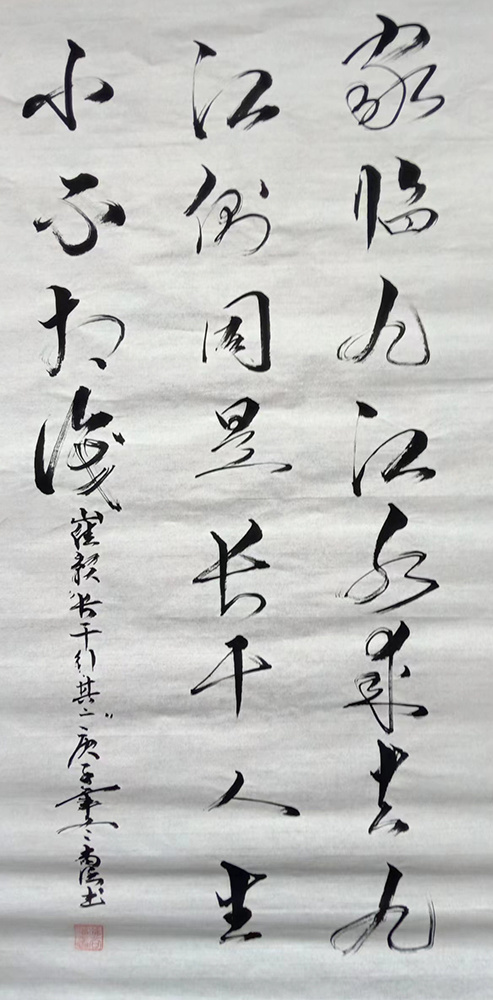 家临九江水来去九
江侧同是长干人生
小不相识
崔颢长干行其二庚子